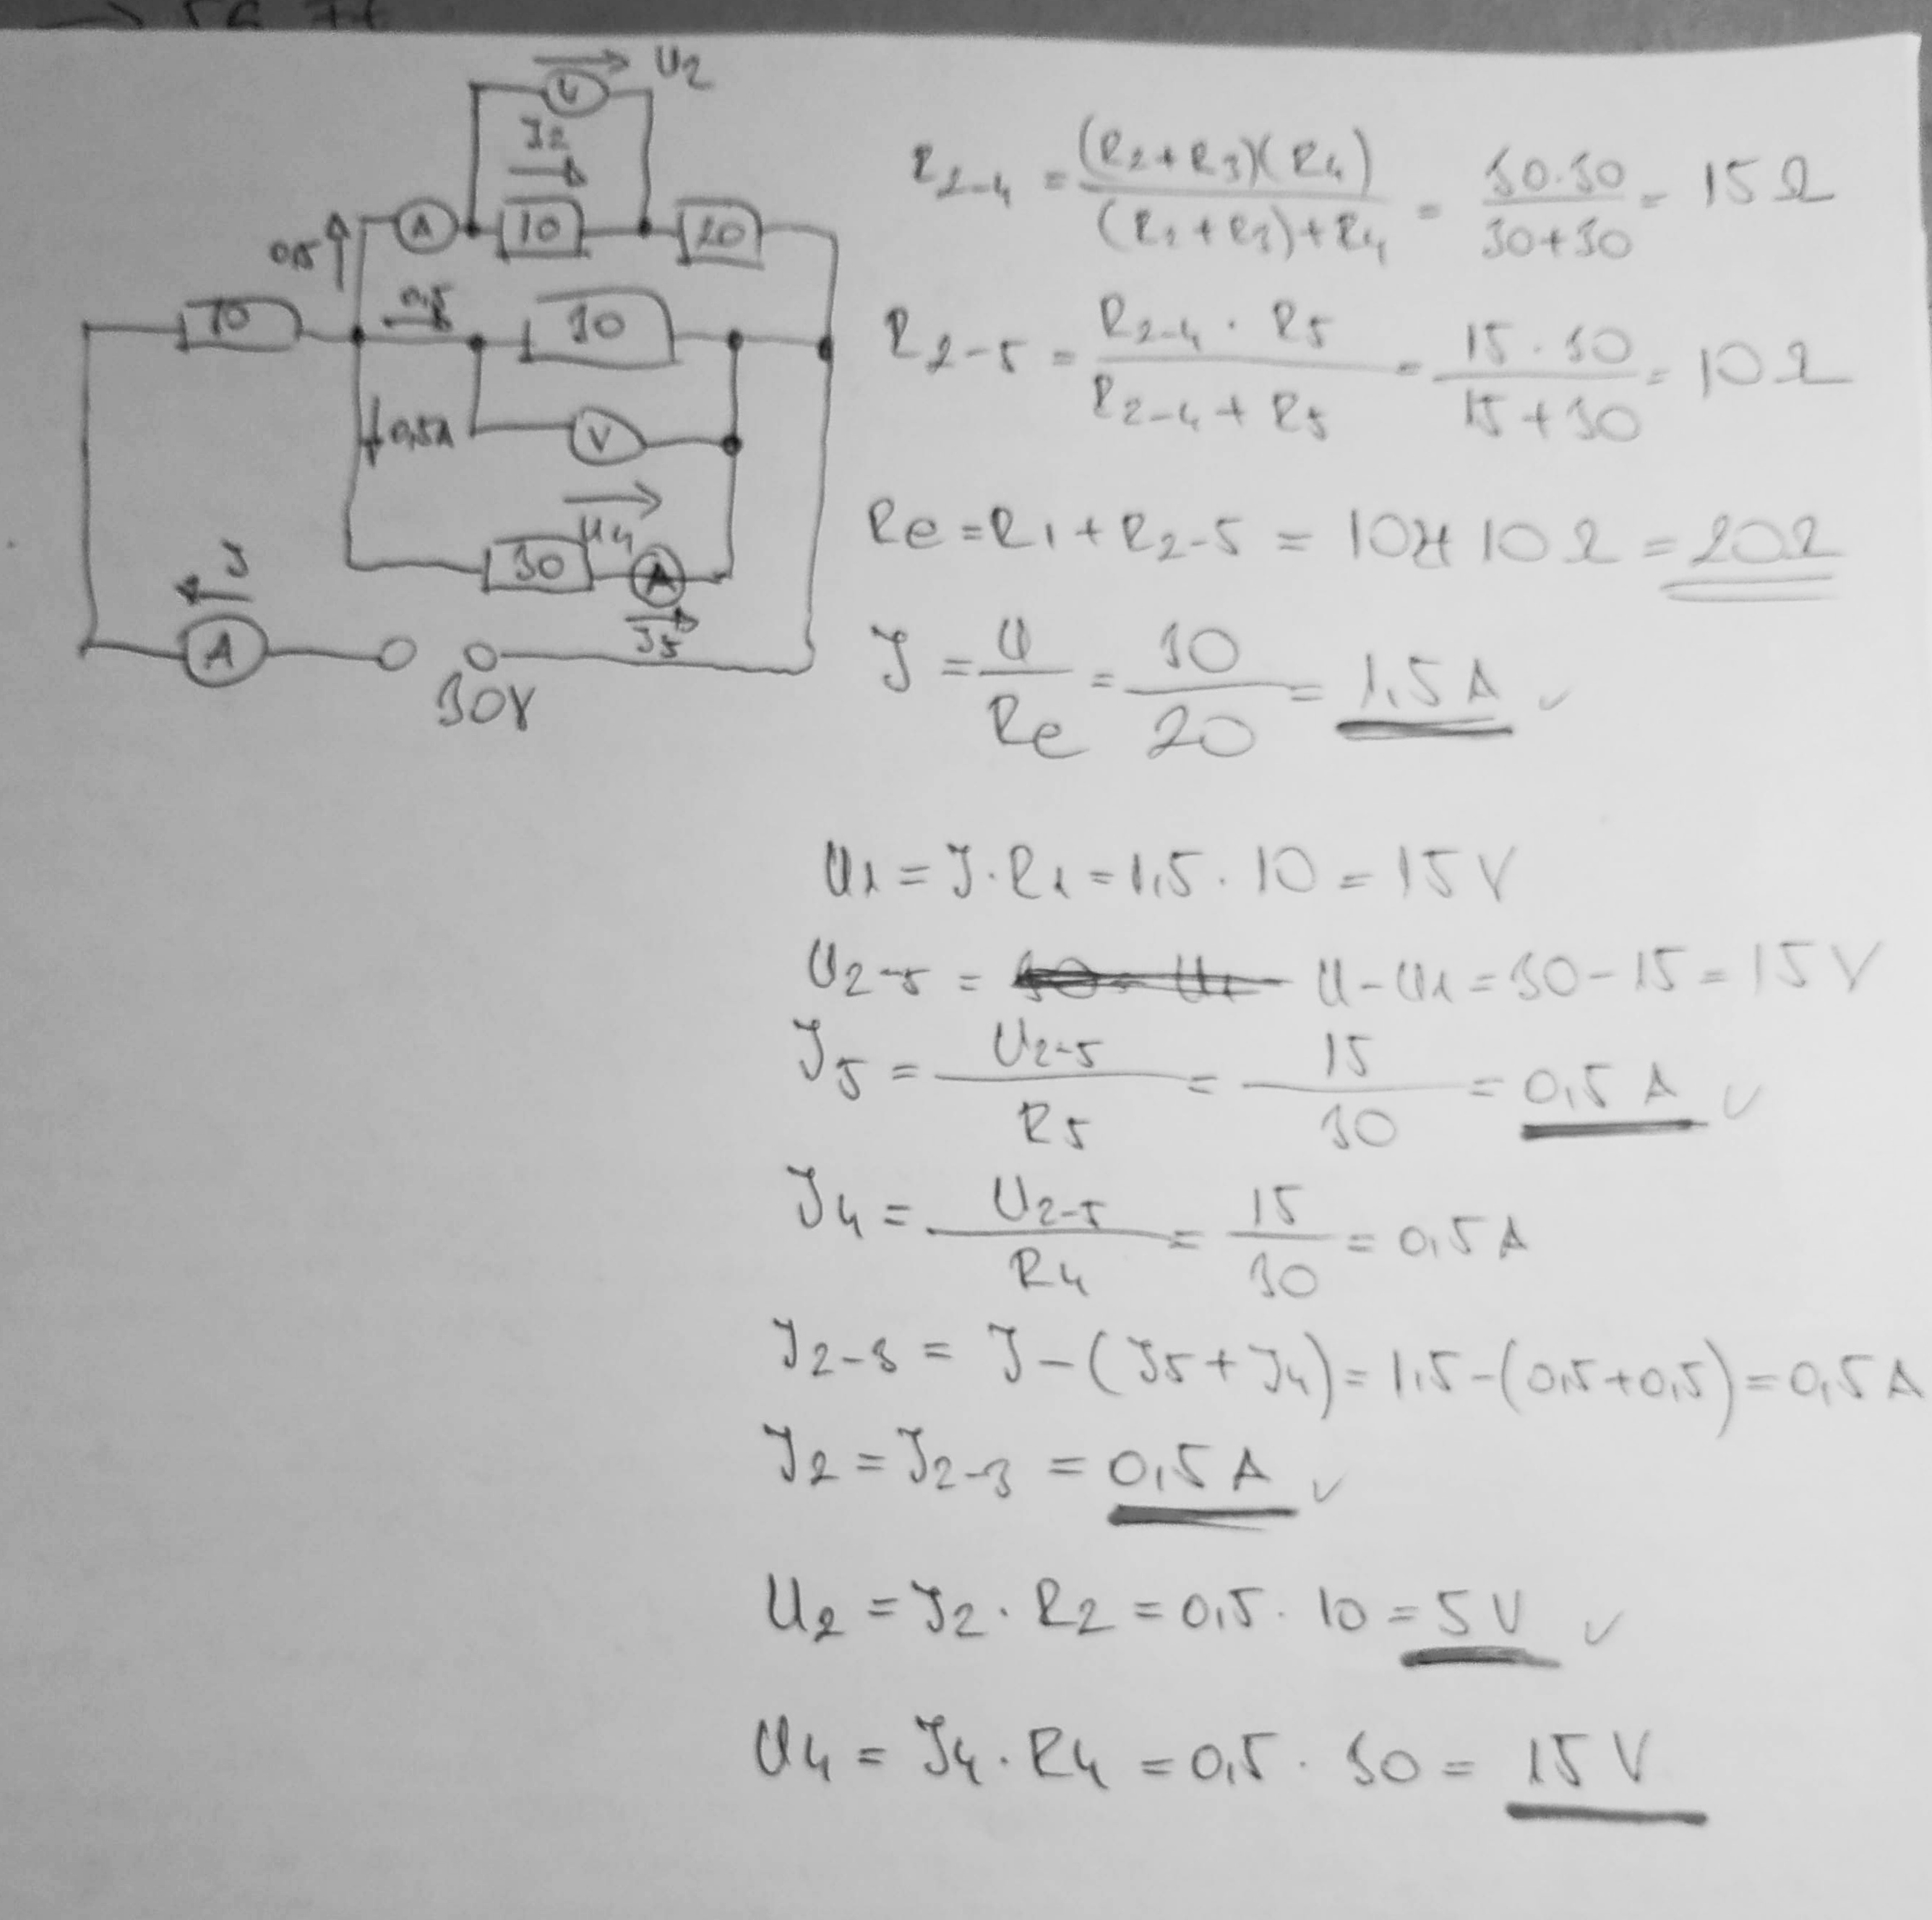 U2
V
I2
0,5
A
10
20
10
0,5
30
0,5A
V
U4
30
A
I5
I
A
30V
R2-4 = (R2+R3)(R4) / (R2+R3)+R4 = 30·30 / 30+30 = 15Ω
R2-5 = R2-4 · R5 / R2-4 + R5 = 15·30 / 15+30 = 10Ω
Re = R1 + R2-5 = 10+10Ω = 20Ω
I = U / Re = 30 / 20 = 1,5A ✓
U1 = I·R1 = 1,5·10 = 15V
U2-5 = U-U1 = 30-15 = 15V
I5 = U2-5 / R5 = 15 / 30 = 0,5A ✓
I4 = U2-5 / R4 = 15 / 30 = 0,5A
I2-3 = I-(I5+I4) = 1,5-(0,5+0,5) = 0,5A
I2 = I2-3 = 0,5A ✓
U2 = I2·R2 = 0,5·10 = 5V ✓
U4 = I4·R4 = 0,5·30 = 15V